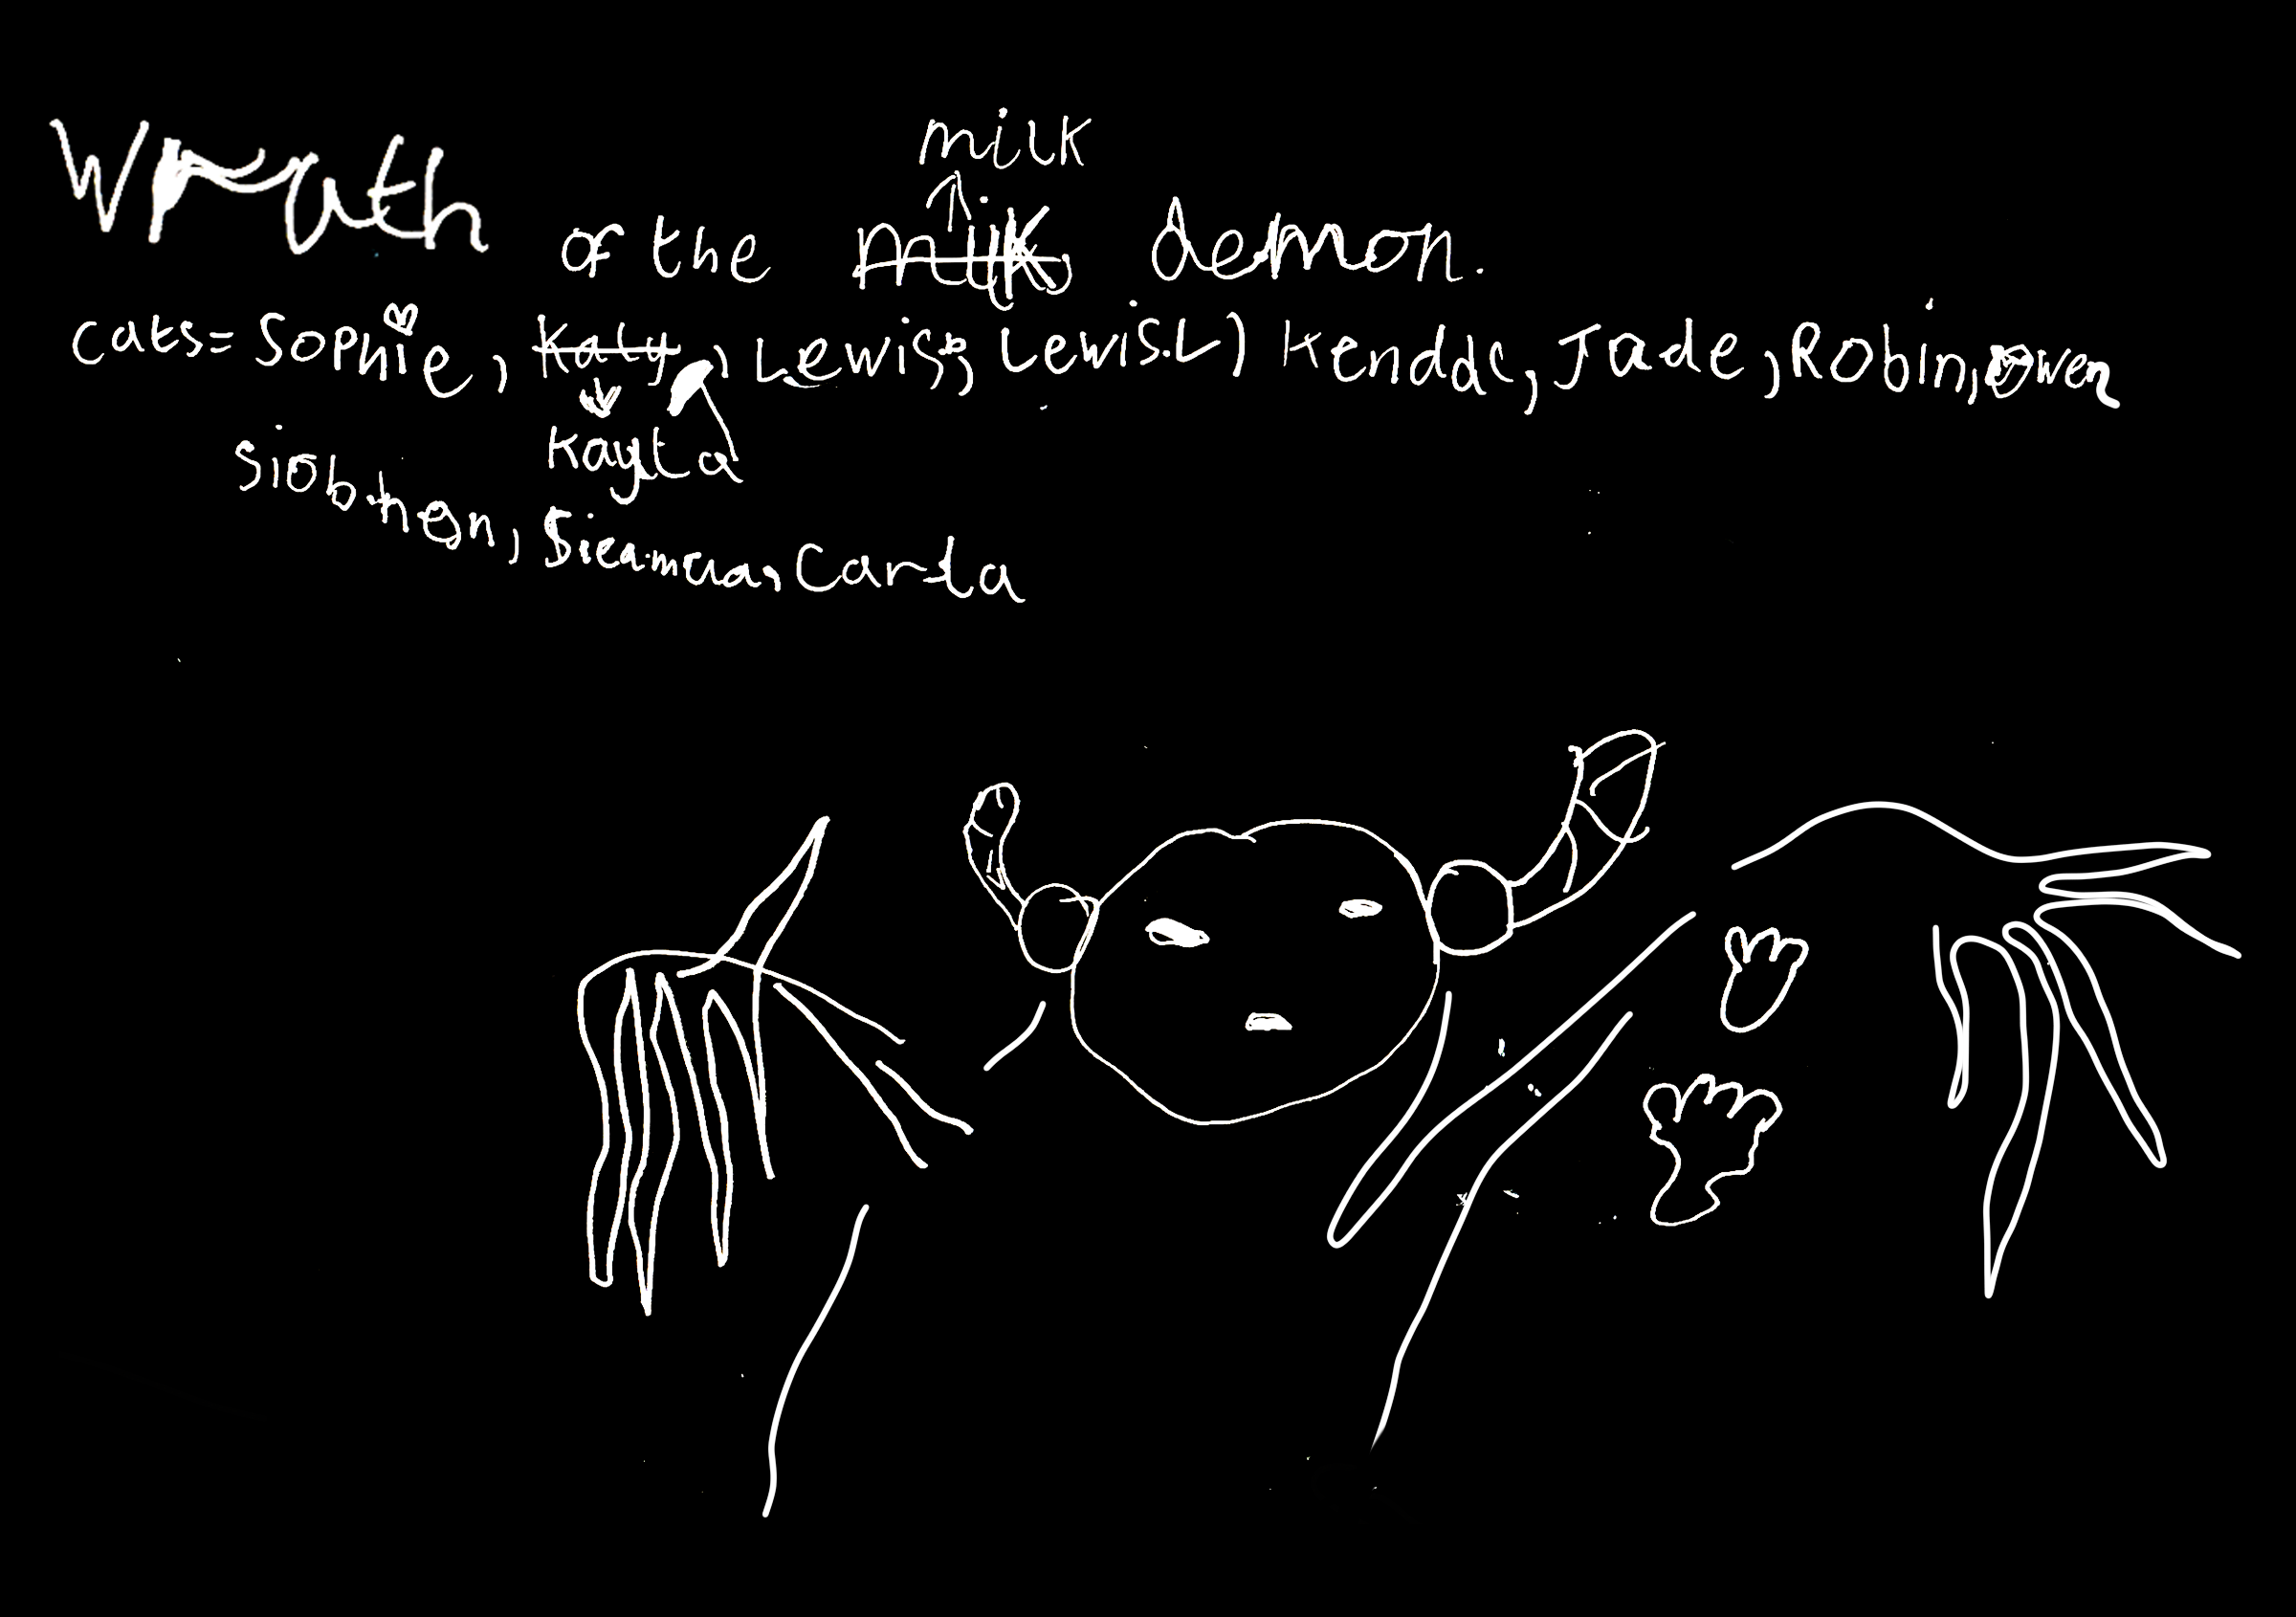 milk
Wrath of the milk demon.
cats= Sophie, Katy, Lewis, Lewis.L, Kendal, Jade, Robin, Owen
Kayla
siobhan, Carla